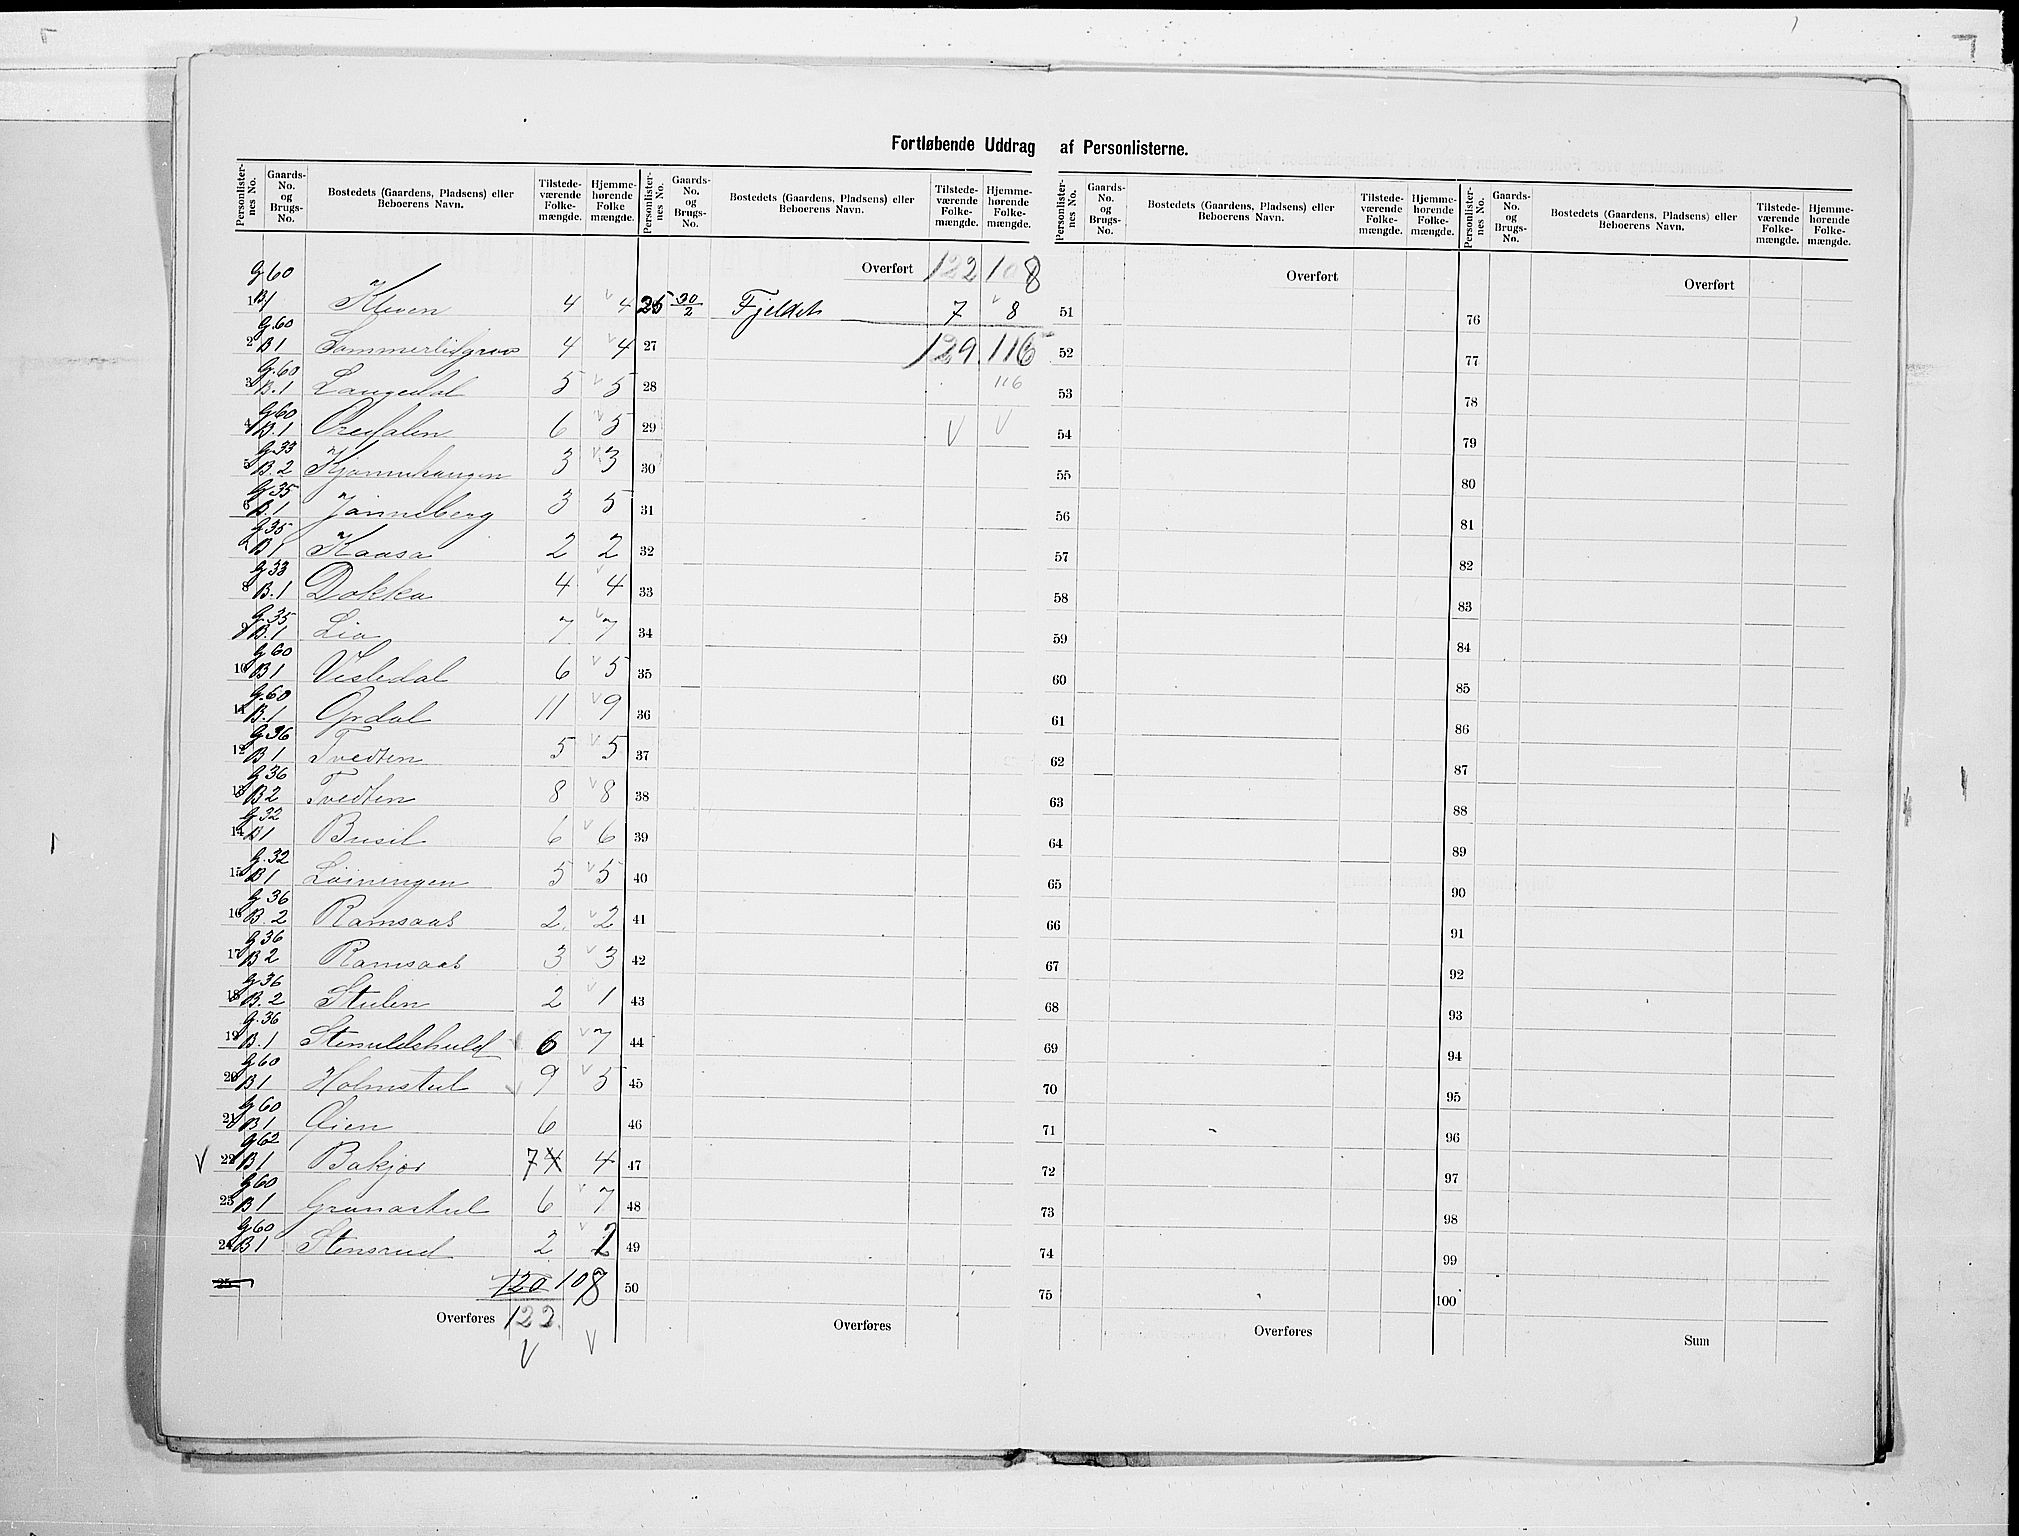 Fortløbende Uddrag af Personlisterne.
Personlister-nes No. Gaards-No. og Brugs-No. Bostedets (Gaardens, Pladsens) eller Beboerens Navn. Tilstede-værende Folke-mængde. Hjemme-hørende Folke mængde. Personlister-nes No. Gaards-No. og Brugs-No. Bostedets (Gaardens, Pladsens) eller Beboerens Navn. Tilstede-værende Folke-mængde. Hjemme-hørende Folke-mængde. Personlister-nes No. Gaards-No. og Brugs-No. Bostedets (Gaardens, Pladsens) eller Beboerens Navn. Tilstede-værende Folke-mængde. Hjemme-hørende Folke-mængde. Personlister-nes No. Gaards-No. og Brugs-No. Bostedets (Gaardens, Pladsens) eller Beboerens Navn. Tilstede-værende Folke-mængde. Hjemme-hørende Folke-mængde.
1 G 60 B 1 Kleven 4 4
2 G. 60 B 1 4 4
3 G. 60 B. 1 Langedal 5 5
4 G 60 B. 1 6 5
5 G. 33 B. 2 3 3
6 G. 35 B. 1 Janneberg 3 5
7 G 35 B 1 Kaasa 2 2
8 G 33 B. 1 Dokka 4 4
9 G. 35 B. 1 Lia 7 7
10 G 60 B 1 Vesledal 6 5
11 G. 60 B. 1 Opdal 11 9
12 G. 36 B 1 Tvedten 5 5
13 G 36 B 2 Tvedten 8 8
14 G 32 B 1 Busil 6 6
15 G. 32 B 1 Løiningen 5 5
16 G. 36 B. 2 Ramsaas 2 2
17 G 36 B 2 Ramsaas 3 3
18 G 36 B. 2 Stulen 2 1
19 G. 36 B. 1 6 7
20 G 60 B 1 Holmstul 9 5
21 G 60 B 1 Øien 6
V 22 G 62 B 1 Bakjor 7 4 4
23 G 60 B 1 Granastul 6 7
24 G 60 B 1 Stensrud 2 2
25 120 108
Overføres 122
V V
Overført 122 108
25 30/2 Fjeldet 7 8
27 129 116
28 116
29 V V
30
31
32
33
34
35
36
37
38
39
40
41
42
43
44
45
46
47
48
49
50
Overføres
Overført
51
52
53
54
55
56
57
58
59
60
61
62
63
64
65
66
67
68
69
70
71
72
73
74
75
Overføres
Overført
76
77
78
79
80
81
82
83
84
85
86
87
88
89
90
91
92
93
94
95
96
97
98
99
100
Sum